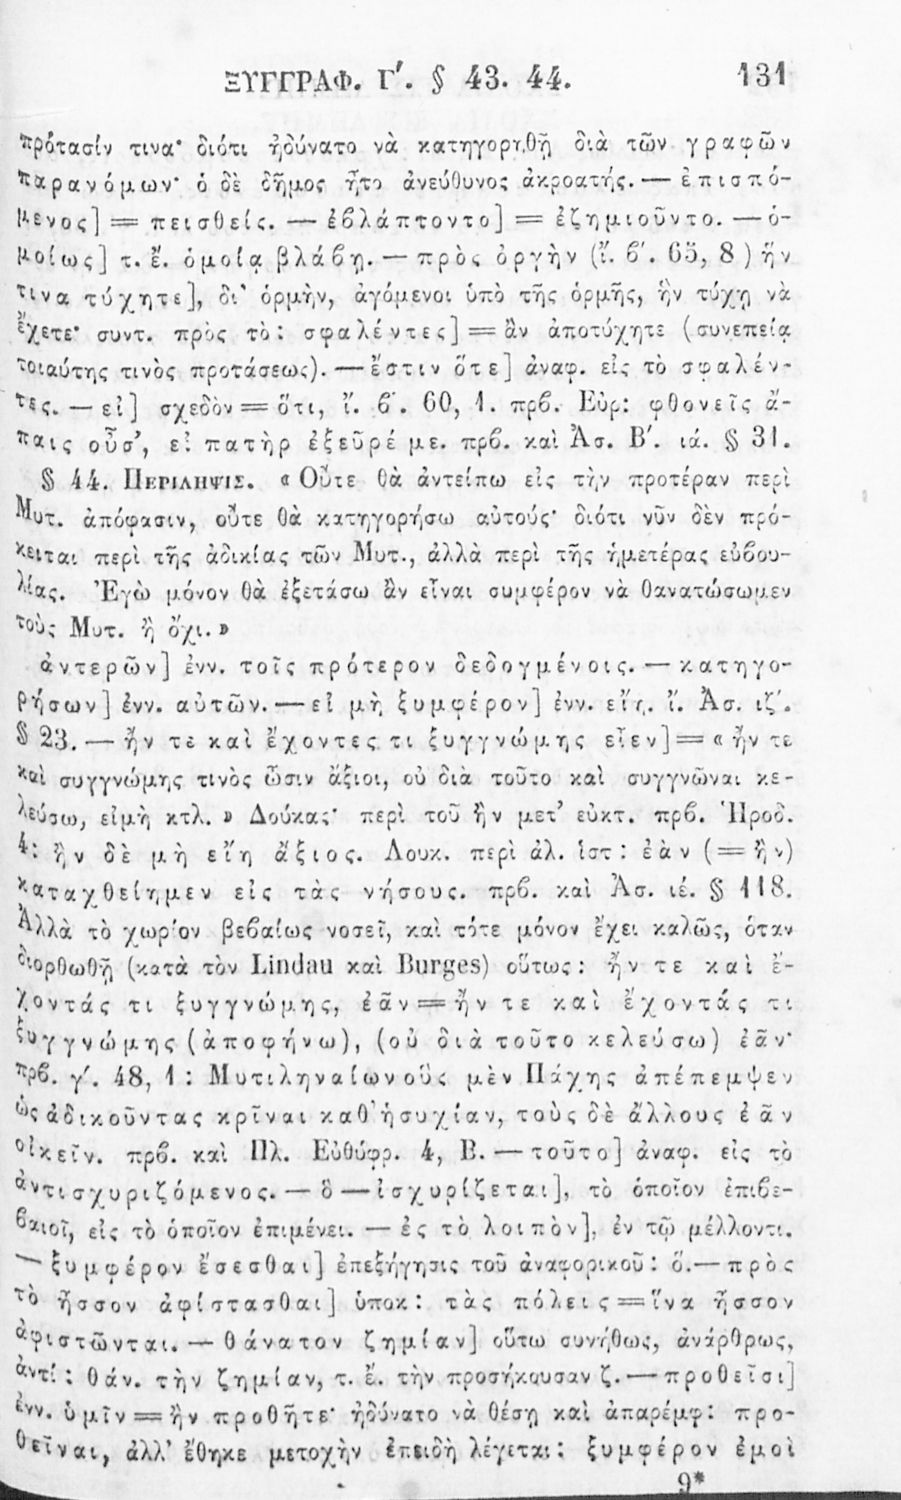 ΞΥΓΓΡΑΦ. Γ΄. § 43. 44. 131
πρότασίν τινα· διότι ἠδύνατο νὰ κατηγορηθῇ διὰ τῶν γραφῶν
παρανόμων· ὁ δὲ δῆμος ἦτο ἀνεύθυνος ἀκροατής. — ἐπισπό-
μενος] = πεισθείς. — ἐβλάπτοντο] = ἐζημιοῦντο. — ὁ-
μοίως] τ. ἔ. ὁμοίᾳ βλάβῃ. — πρὸς ὀργὴν (ἴ. β΄. 65, 8) ἥν
τινα τύχητε], δι' ὁρμὴν, ἀγόμενοι ὑπὸ τῆς ὁρμῆς, ἣν τύχῃ νὰ
ἔχετε· συντ. πρὸς τὸ: σφαλέντες] = ἂν ἀποτύχητε (συνεπείᾳ
τοιαύτης τινὸς προτάσεως). — ἔστιν ὅτε] ἀναφ. εἰς τὸ σφαλέν-
τες. — εἰ] σχεδὸν = ὅτι, ἴ. β΄. 60, 1. πρβ. Εὐρ: φθονεῖς ἄ-
παις οὖσ', εἰ πατὴρ ἐξεῦρέ με. πρβ. καὶ Ἀσ. Β΄. ιά. § 31.
§ 44. ΠΕΡΙΛΗΨΙΣ. « Οὔτε θὰ ἀντείπω εἰς τὴν προτέραν περὶ
Μυτ. ἀπόφασιν, οὔτε θὰ κατηγορήσω αὐτούς· διότι νῦν δὲν πρό-
κειται περὶ τῆς ἀδικίας τῶν Μυτ., ἀλλὰ περὶ τῆς ἡμετέρας εὐβου-
λίας. Ἐγὼ μόνον θὰ ἐξετάσω ἂν εἶναι συμφέρον νὰ θανατώσωμεν
τοὺς Μυτ. ἢ ὄχι. »
ἀντερῶν] ἐνν. τοῖς πρότερον δεδογμένοις. — κατηγο-
ρήσων] ἐνν. αὐτῶν. — εἰ μὴ ξυμφέρον] ἐνν. εἴη. ἴ. Ἀσ. ιζ΄.
§ 23. — ἤν τε καὶ ἔχοντες τι ξυγγνώμης εἶεν] = « ἤν τε
καὶ συγγνώμης τινὸς ὦσιν ἄξιοι, οὐ διὰ τοῦτο καὶ συγγνῶναι κε-
λεύσω, εἰμὴ κτλ. » Δούκας· περὶ τοῦ ἢν μετ' εὐκτ. πρβ. Ἡροδ.
4: ἢν δὲ μὴ εἴη ἄξιος. Λουκ. περὶ ἀλ. ἱστ: ἐὰν (= ἢν)
καταχθείημεν εἰς τὰς νήσους. πρβ. καὶ Ἀσ. ιέ. § 118.
Ἀλλὰ τὸ χωρίον βεβαίως νοσεῖ, καὶ τότε μόνον ἔχει καλῶς, ὅταν
διορθωθῇ (κατὰ τὸν Lindau καὶ Burges) οὕτως: ἤν τε καὶ ἔ-
χοντάς τι ξυγγνώμης, ἐᾶν = ἤν τε καὶ ἔχοντάς τι
ξυγγνώμης (ἀποφήνω), (οὐ διὰ τοῦτο κελεύσω) ἐᾶν·
πρβ. γ΄. 48, 1: Μυτιληναίων οὓς μὲν Πάχης ἀπέπεμψεν
ὡς ἀδικοῦντας κρῖναι καθ' ἡσυχίαν, τοὺς δὲ ἄλλους ἐᾶν
οἰκεῖν. πρβ. καὶ Πλ. Εὐθύφρ. 4, Β. — τοῦτο] ἀναφ. εἰς τὸ
ἀντισχυριζόμενος. — ὃ — ἰσχυρίζεται], τὸ ὁποῖον ἐπιβε-
βαιοῖ, εἰς τὸ ὁποῖον ἐπιμένει. — ἐς τὸ λοιπὸν], ἐν τῷ μέλλοντι.
— ξυμφέρον ἔσεσθαι] ἐπεξήγησις τοῦ ἀναφορικοῦ: ὅ. — πρὸς
τὸ ἧσσον ἀφίστασθαι] ὑποκ: τὰς πόλεις = ἵνα ἧσσον
ἀφιστῶνται. — θάνατον ζημίαν] οὕτω συνήθως, ἀνάρθρως,
ἀντί: θάν. τὴν ζημίαν, τ. ἔ. τὴν προσήκουσαν ζ. — προθεῖσι]
ἐνν. ὑμῖν = ἢν προθῆτε· ἠδύνατο νὰ θέσῃ καὶ ἀπαρέμφ: προ-
θεῖναι, ἀλλ' ἔθηκε μετοχὴν ἐπειδὴ λέγεται: ξυμφέρον ἐμοὶ
9*